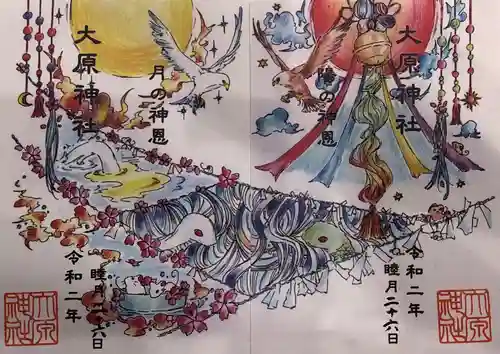 大原神社
陽の神恩
令和二年
睦月二十六日
大原神社
大原神社
月の神恩
令和二年
睦月二十六日
大原神社